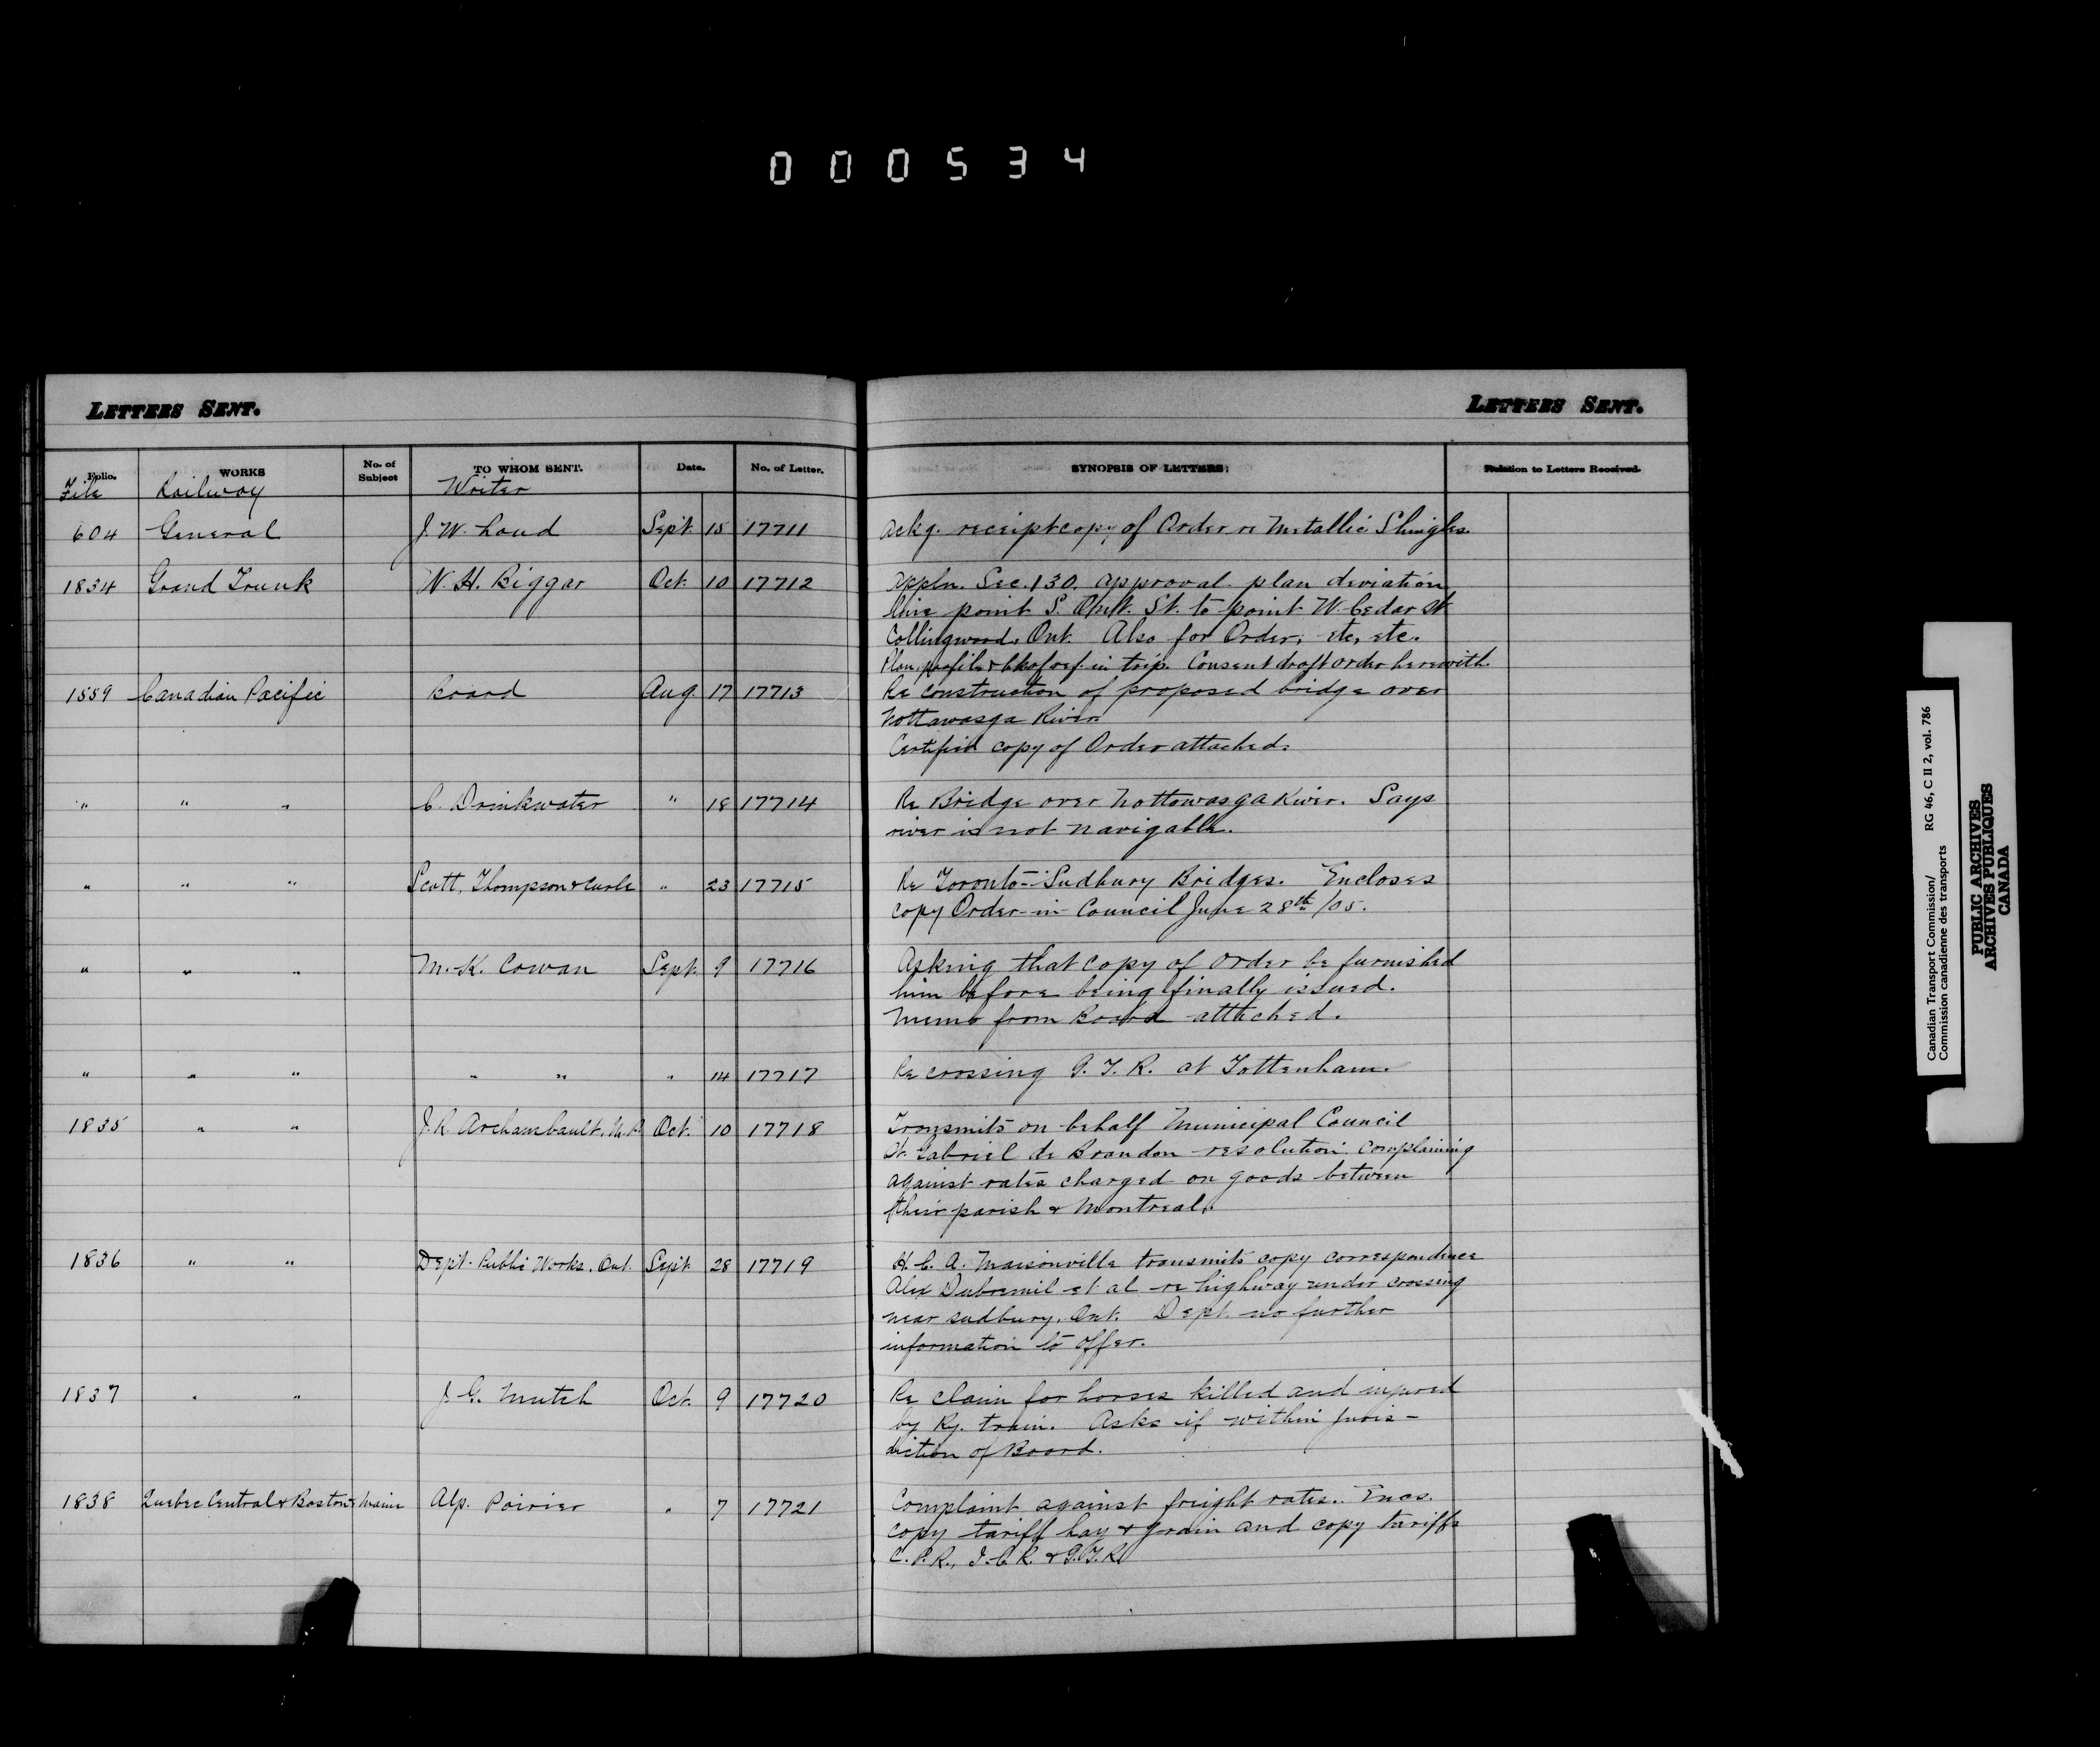 000534
LETTERS SENT.
LETTERS SENT.
Folio. WORKS No. of Subject TO WHOM SENT. Date. No. of Letter. SYNOPSIS OF LETTERS: Relation to Letters Received.
File Railway Writer
604 General J. W. Loud Sept. 15 17711 Ackg. receipt copy of Order re Metallic Shingles
1834 Grand Trunk W. H. Biggar Oct. 10 17712 Appln. Sec. 130. approval plan deviation
line point S. Ont. St. to point W. Cedar St
Collingwood, Ont. Also for Order, etc, etc.
Plan, profile & bk of ref. in trip. Consent draft order herewith.
1559 Canadian Pacific Board Aug. 17 17713 Re construction of proposed bridge over
Nottawasga River.
Certified copy of Order attached.
" " " C. Drinkwater " 18 17714 Re Bridge over Nottowasga River. Says
river is not navigable.
" " " Scott, Thompson & Curle " 23 17715 Re Toronto-Sudbury Bridges. Encloses
copy Order-in-Council June 28th/05.
" " " M. K. Cowan Sept. 9 17716 Asking that copy of order be furnished
him before being finally issued.
Memo from Board attached.
" " " " " " 14 17717 Re crossing G. T. R. at Tottenham.
1835 " " J. R. Archambault, M.P. Oct. 10 17718 Transmits on behalf Municipal Council
St. Gabriel de Brandon resolution complaining
against rates charged on goods between
their parish & Montreal.
1836 " " Dept. Public Works, Ont. Sept. 28 17719 H. C. A. Maisonville transmits copy correspondence
Alex Dubremil et al re highway under crossing
near Sudbury, Ont. Dept. no further
information to offer.
1837 " " J. G. Mutch Oct. 9 17720 Re claim for horses killed and injured
by Ry. train. Asks if within juris-
diction of Board.
1838 Quebec Central & Boston & Maine Alp. Poirier " 7 17721 Complaint against freight rates. Encs.
copy tariff hay & grain and copy tariffs
C. P. R., I. C. R. & G.T.R.
Canadian Transport Commission/ RG 46, C II 2, vol. 786
Commission canadienne des transports
PUBLIC ARCHIVES
ARCHIVES PUBLIQUES
CANADA